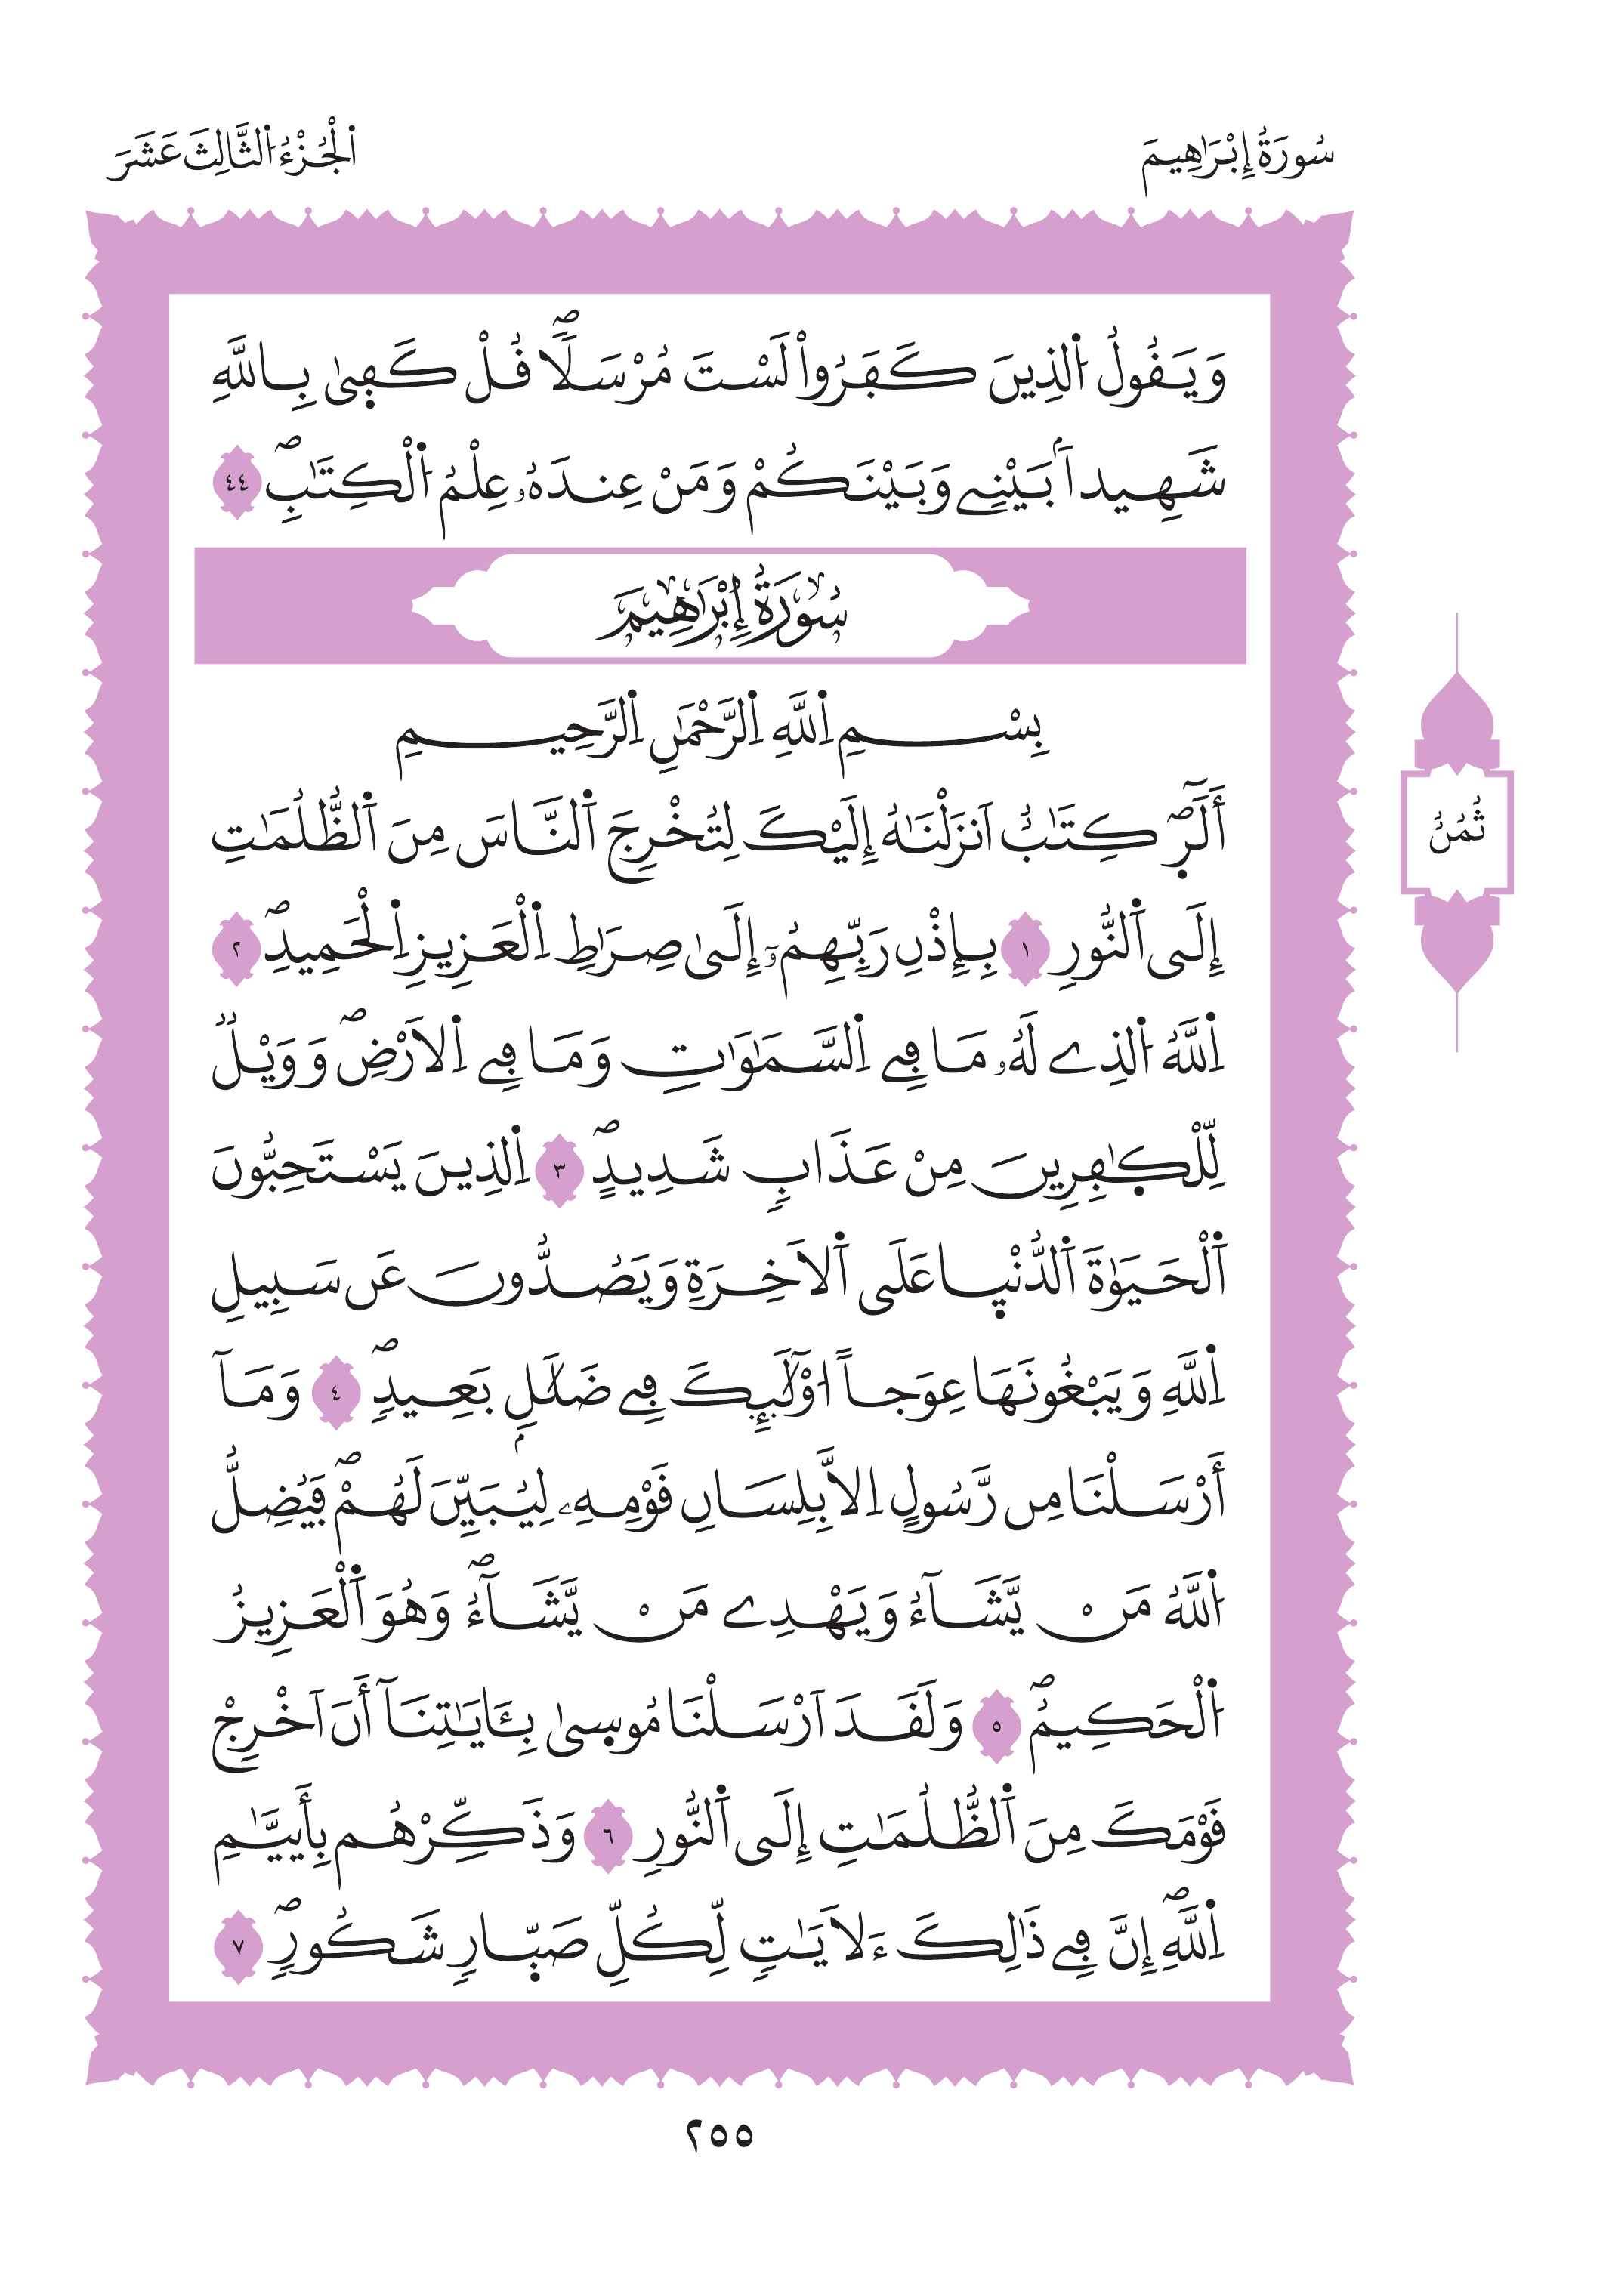 سُورَةُ إِبْرَٰهِيمَ
اَلْجُزْءُ اَلثَّالِثَ عَشَرَ
وَيَقُولُ اُلذِينَ كَفَرُواْ لَسْتَ مُرْسَلاٗۖ قُلْ كَف۪ىٰ بِاللَّهِ
شَهِيداَۢ بَيْنِے وَبَيْنَكُمْ وَمَنْ عِندَهُۥ عِلْمُ اُلْكِتَٰبِۖ ٤٤
سُورَةُ إِبْرَٰهِيمَ
بِسْمِ اِللَّهِ اِلرَّحْمَٰنِ اِلرَّحِيمِ
أَلَٓر۪ۖ كِتَٰبٌ اَنزَلْنَٰهُ إِلَيْكَ لِتُخْرِجَ اَلنَّاسَ مِنَ اَلظُّلُمَٰتِ
إِلَى اَلنُّورِ ١ بِإِذْنِ رَبِّهِمُۥٓ إِلَىٰ صِرَٰطِ اِلْعَزِيزِ اِلْحَمِيدِۖ ٢
اِللَّهُ اُلذِے لَهُۥ مَا فِے اِلسَّمَٰوَٰتِ وَمَا فِے اِلَارْضِۖ وَوَيْلٞ
لِّلْكٰ۪فِرِينَ مِنْ عَذَابٖ شَدِيدٍۖ ٣ اِلذِينَ يَسْتَحِبُّونَ
اَلْحَيَوٰةَ اَلدُّنْي۪ا عَلَى اَلَاخِرَةِ وَيَصُدُّونَ عَن سَبِيلِ
اِللَّهِ وَيَبْغُونَهَا عِوَجاً اُوْلَٰٓئِكَ فِے ضَلَٰلِۢ بَعِيدٖۖ ٤ وَمَآ
أَرْسَلْنَا مِن رَّسُولٍ اِلَّا بِلِسَانِ قَوْمِهِۦ لِيُبَيِّنَ لَهُمْۖ فَيُضِلُّ
اُللَّهُ مَنْ يَّشَآءُ وَيَهْدِے مَنْ يَّشَآءُۖ وَهُوَ اَلْعَزِيزُ
اُلْحَكِيمُۖ ٥ وَلَقَدَ اَرْسَلْنَا مُوس۪ىٰ بِـَٔايَٰتِنَآ أَنَ اَخْرِجْ
قَوْمَكَ مِنَ اَلظُّلُمَٰتِ إِلَى اَلنُّورِ ٦ وَذَكِّرْهُم بِأَيَّيٰمِ
اِللَّهِۖ إِنَّ فِے ذَٰلِكَ ءَلَايَٰتٖ لِّكُلِّ صَبّ۪ارٖ شَكُورٖۖ ٧
ثُمُنٌ
٢٥٥